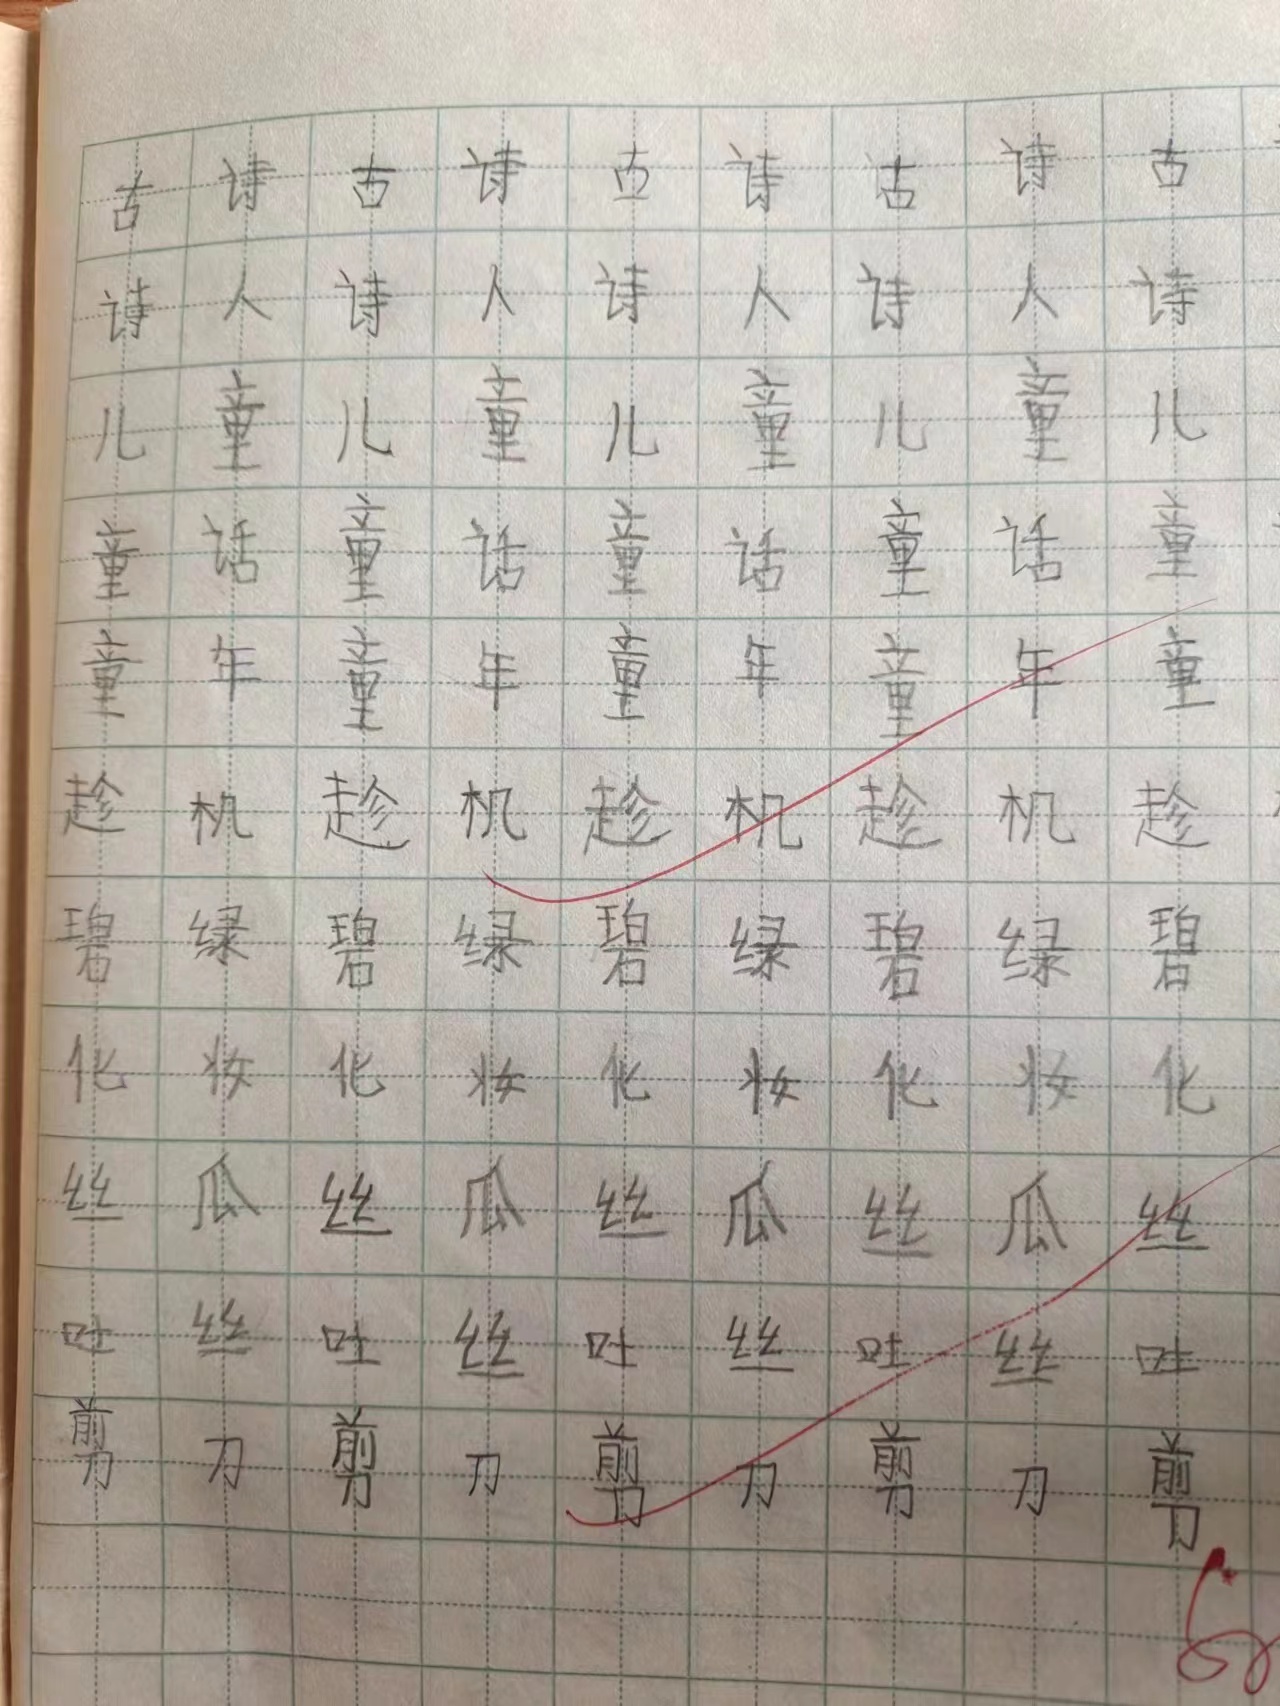 古诗古诗古诗古诗古
诗人诗人诗人诗人诗
儿童儿童儿童儿童儿
童话童话童话童话童
童年童年童年童年童
趁机趁机趁机趁机趁
碧绿碧绿碧绿碧绿碧
化妆化妆化妆化妆化
丝瓜丝瓜丝瓜丝瓜丝
吐丝吐丝吐丝吐丝吐
剪刀剪刀剪刀剪刀剪